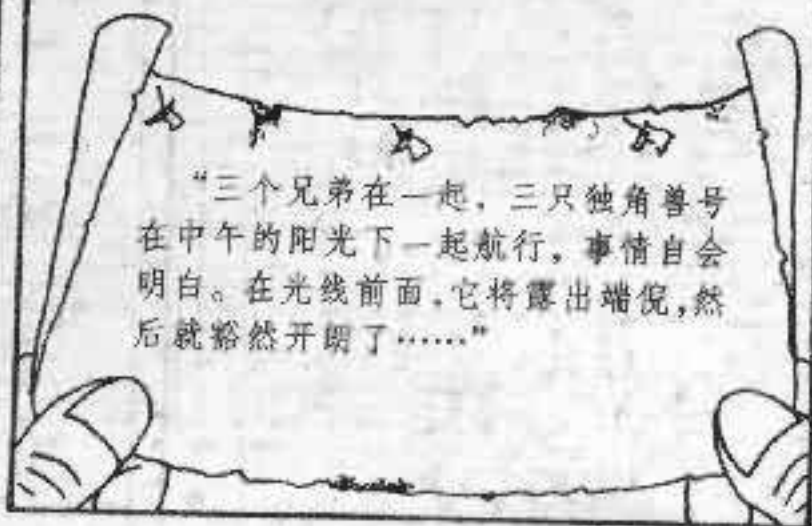 “三个兄弟在一起，三只独角兽号
在中午的阳光下一起航行，事情自会
明白。在光线前面，它将露出端倪，然
后就豁然开朗了……”